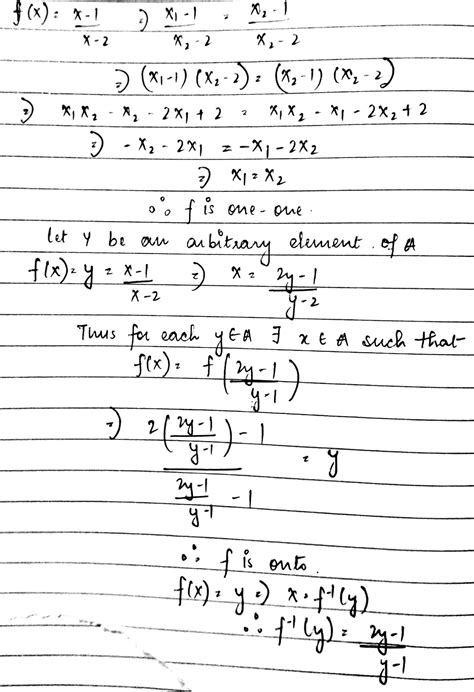 f(x) = x-1/x-2 ⇒ x₁-1/x₂-2 = x₂-1/x₂-2
⇒ (x₁-1) (x₂-2) = (x₂-1) (x₂-2)
⇒ x₁x₂ - x₂ - 2x₁ + 2 = x₁x₂ - x₁ - 2x₂ + 2
⇒ -x₂ - 2x₁ = -x₁ - 2x₂
⇒ x₁ = x₂
∴ f is one-one.
let y be an arbitrary element of A
f(x) = y = x-1/x-2 ⇒ x = 2y-1/y-2
Thus for each y ∈ A ∃ x ∈ A such that
f(x) = f(2y-1/y-1)
⇒ 2(2y-1/y-1) - 1 / 2y-1/y-1 - 1 = y
∴ f is onto.
f(x) = y ⇒ x = f⁻¹(y)
∴ f⁻¹(y) = 2y-1/y-1